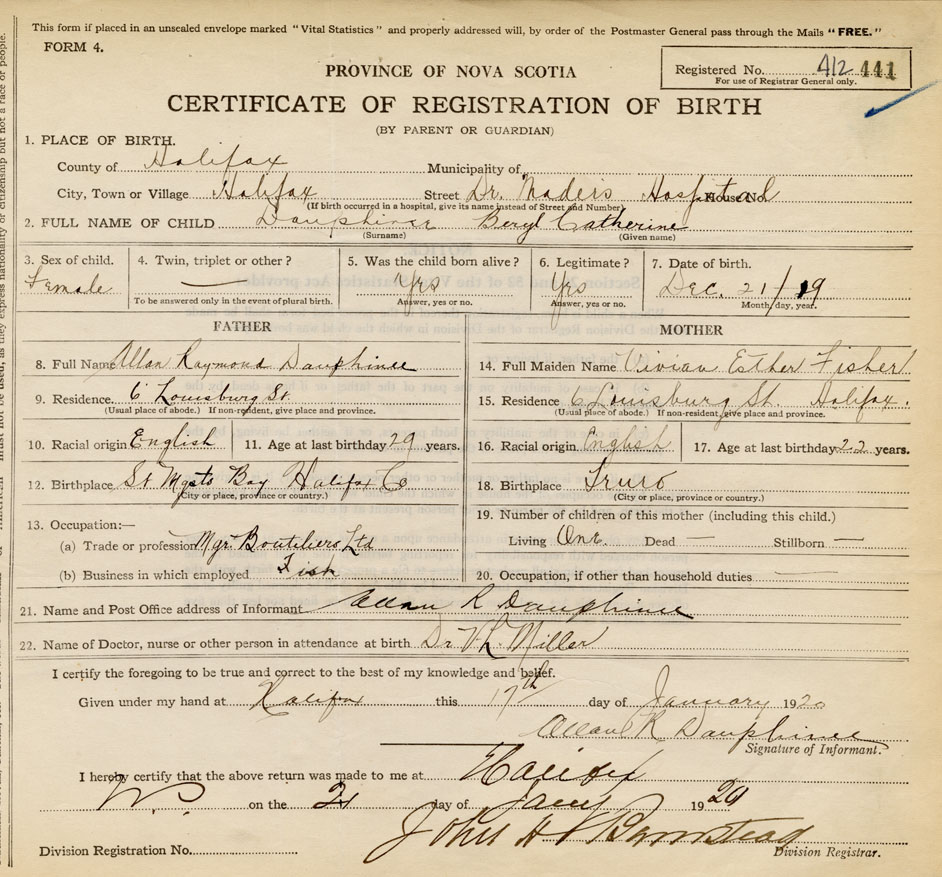 This form if placed in an unsealed envelope marked "Vital Statistics" and properly addressed will, by order of the Postmaster General pass through the Mails "FREE."
FORM 4.
Registered No. 412 441
For use of Registrar General only.
PROVINCE OF NOVA SCOTIA
CERTIFICATE OF REGISTRATION OF BIRTH
(BY PARENT OR GUARDIAN)
1. PLACE OF BIRTH.
County of Halifax Municipality of
City, Town or Village Halifax Street Dr. Maders Hospital House No.
(If birth occurred in a hospital, give its name instead of Street and Number)
2. FULL NAME OF CHILD Dauphinee Beryl Catherine
(Surname) (Given name)
3. Sex of child. 4. Twin, triplet or other? 5. Was the child born alive? 6. Legitimate? 7. Date of birth.
Female — Yes Yes Dec. 21/19
To be answered only in the event of plural birth. Answer, yes or no. Answer, yes or no. Month, day, year.
FATHER MOTHER
8. Full Name Allan Raymond Dauphinee 14. Full Maiden Name Vivian Esther Fisher
9. Residence. 6 Louisburg St. 15. Residence 6 Louisburg St. Halifax.
(Usual place of abode.) If non-resident, give place and province. (Usual place of abode.) If non-resident, give place and province.
10. Racial origin English 11. Age at last birthday 29 years. 16. Racial origin English 17. Age at last birthday 22 years.
12. Birthplace St Mgsts Bay Halifax Co 18. Birthplace Truro
(City or place, province or country.) (City or place, province or country.)
13. Occupation:— 19. Number of children of this mother (including this child.)
(a) Trade or profession Mgr Boutiliers Ltd Living One. Dead — Stillborn —
(b) Business in which employed Fish 20. Occupation, if other than household duties —
21. Name and Post Office address of Informant Allan R Dauphinee
22. Name of Doctor, nurse or other person in attendance at birth Dr V. L. Miller
I certify the foregoing to be true and correct to the best of my knowledge and belief.
Given under my hand at Halifax this 17th day of January 1920
Allan R Dauphinee
Signature of Informant.
I hereby certify that the above return was made to me at Halifax
on the 21 day of Jany 1920
John H Barnstead
Division Registration No. Division Registrar.